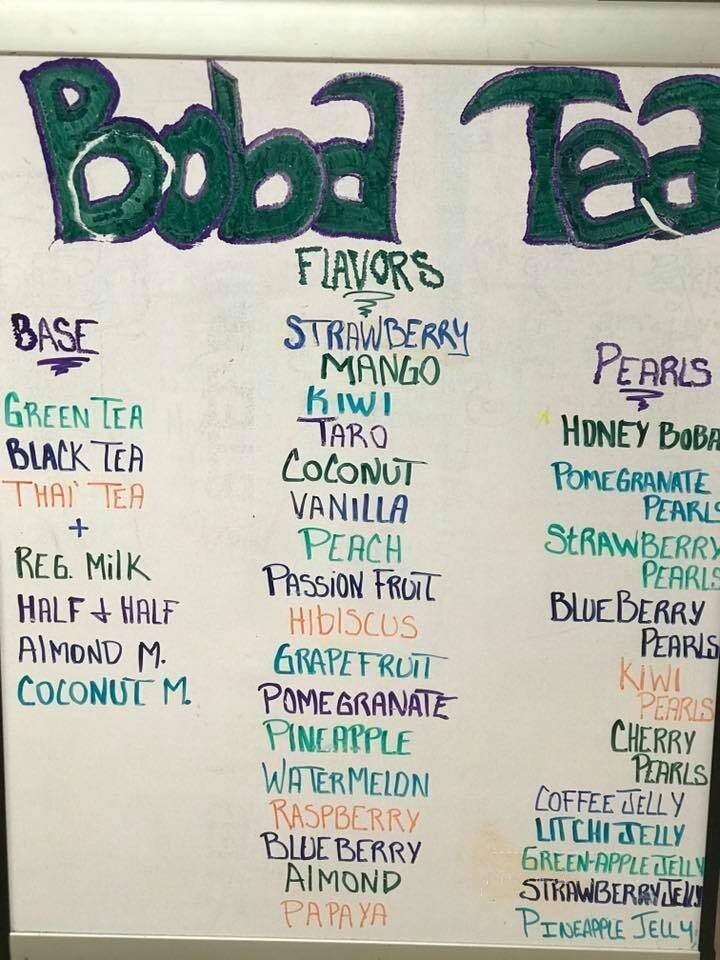 Boba Tea
FLAVORS
BASE
GREEN TEA
BLACK TEA
THAI TEA
+
REG. MilK
HALF & HALF
AlMOND M.
COCONUT M.
STRAWBERRY
MANGO
KIWI
TARO
COCONUT
VANILLA
PEACH
PASSION FRUIT
HIbISCUS
GRAPEFRUIT
POMEGRANATE
PINEAPPLE
WATERMELON
RASPBERRY
BLUEBERRY
AlMOND
PAPAYA
PEARLS
HONEY BOBA
POMEGRANATE
PEARLS
STRAWBERRY
PEARLS
BLUEBERRY
PEARLS
KIWI
PEARLS
CHERRY
PEARLS
COFFEE JELLY
LITCHI JELLY
GREEN-APPLE JELLY
STRAWBERRY JELLY
PINEAPPLE JELLY